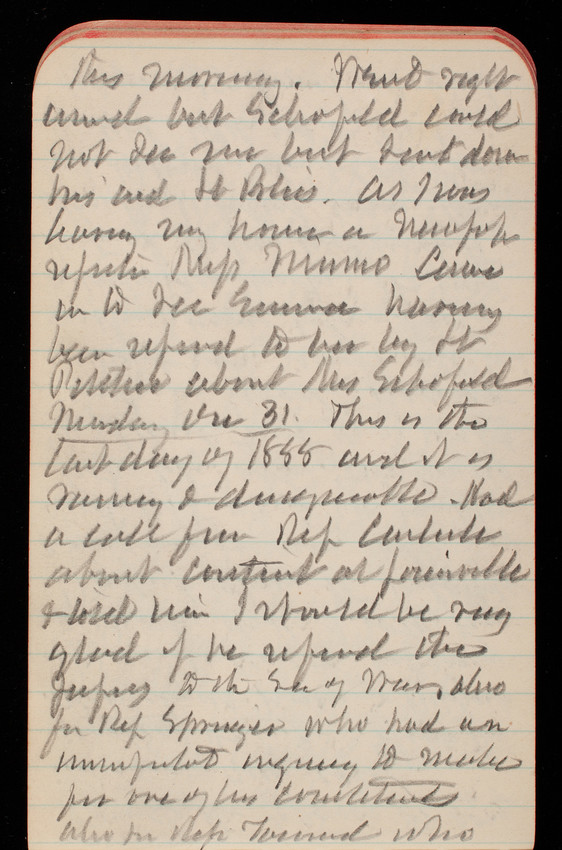 this morning. Went right
around but Schofield could
not see me but sent down
his aid Lt Bliss. As I was
having my a
Mrs came
in to see having
been referred to her by Lt
about Mrs Schofield
Monday Dec 31. This is the
last day of 1888 and it is
rainy & disagreeable. Had
a call from Rep Carlisle
about contract at
& told him I should be very
glad if he referred the
to the Sec of War, also
for Rep Springer who had an
inquiry to make
for one of his constituents
also for Rep who